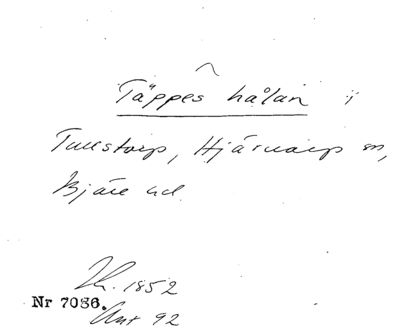 Täppes hålan i
Tullstorp, Hjärnarp sn,
Bjäre hd.
Th. 1852
Nr 7086.
Ant 92